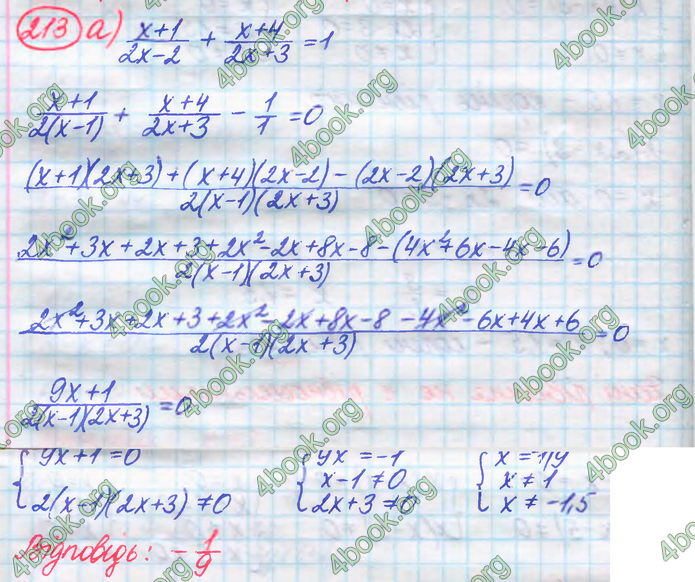 213 а) (x+1)/(2x-2) + (x+4)/(2x+3) = 1
(x+1)/(2(x-1)) + (x+4)/(2x+3) - 1/1 = 0
((x+1)(2x+3)+(x+4)(2x-2)-(2x-2)(2x+3))/(2(x-1)(2x+3)) = 0
(2x²+3x+2x+3+2x²-2x+8x-8-(4x²+6x-4x-6))/(2(x-1)(2x+3)) = 0
(2x²+3x+2x+3+2x²-2x+8x-8-4x²-6x+4x+6)/(2(x-1)(2x+3)) = 0
(9x+1)/(2(x-1)(2x+3)) = 0
{ 9x+1=0 { 9x=-1 { x=-1/9
x-1≠0 x≠1
2(x-1)(2x+3)≠0 2x+3≠0 x≠-1,5
Відповідь: -1/9
4book.org